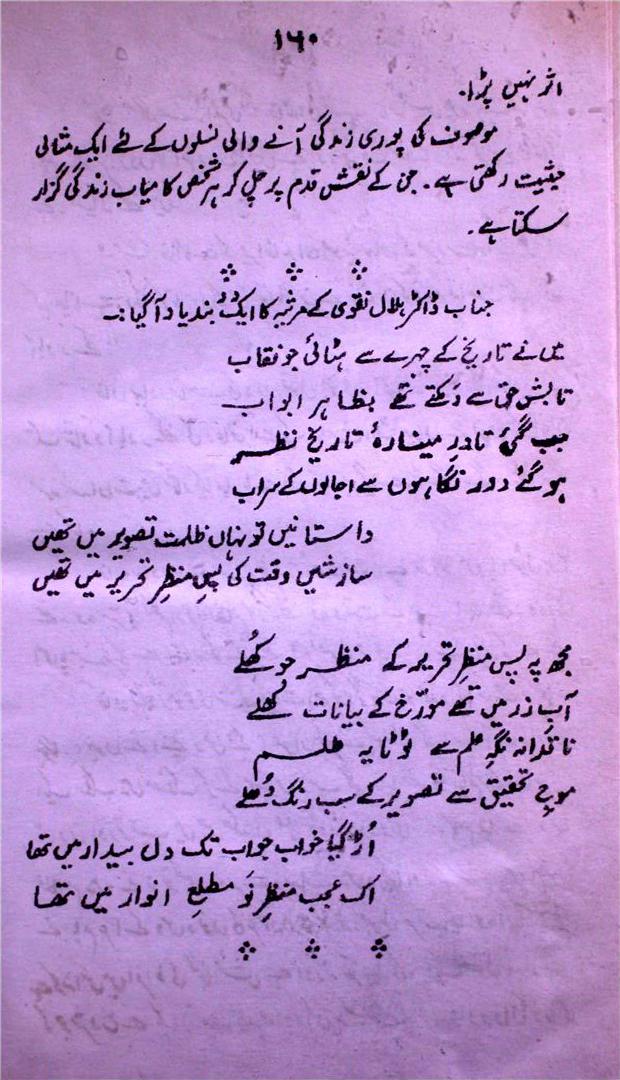 ۱۶۰
اثر نہیں پڑا۔
موصوف کی پوری زندگی آنے والی نسلوں کے لئے ایک مثالی
حیثیت رکھتی ہے۔ جن کے نقش قدم پر چل کر ہر شخص کامیاب زندگی گزار
سکتا ہے۔
جناب ڈاکٹر ہلال نقوی کے مرثیہ کا ایک دو بند یاد آ گیا:۔
میں نے تاریخ کے چہرے سے ہٹائی جو نقاب
تابش حق سے دَمکتے تھے بظاہر ابواب
جب گئی تا درِ مینارۂ تاریخ نظر
ہو گئے دور نگاہوں سے اجالوں کے سراب
داستانیں تو نہاں ظلمت تصویر میں تھیں
سازشیں وقت کی پسِ منظرِ تحریر میں تھیں
مجھ پہ پس منظرِ تحریر کے منظر جو کھُلے
آبِ زر میں تھے مورّخ کے بیانات گھُلے
ناقدانہ نگہِ علم سے ٹوٹا یہ طلسم
موجِ تحقیق سے تصویر کے سب رنگ دُھلے
اُڑ گیا خواب جو اب تک دل بیدار میں تھا
اک عجب منظرِ نَو مطلعِ انوار میں تھا